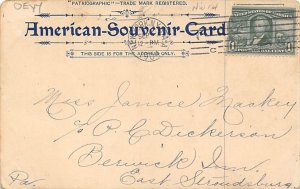 DEVY
NW14
"PATRIOGRAPHIC"—TRADE MARK REGISTERED.
American-Souvenir-Card
THIS SIDE IS FOR THE ADDRESS ONLY.
Miss Janice Mackey
c/o P. C. Dickerson
Berwick Inn,
East Stroudsburg
Pa.